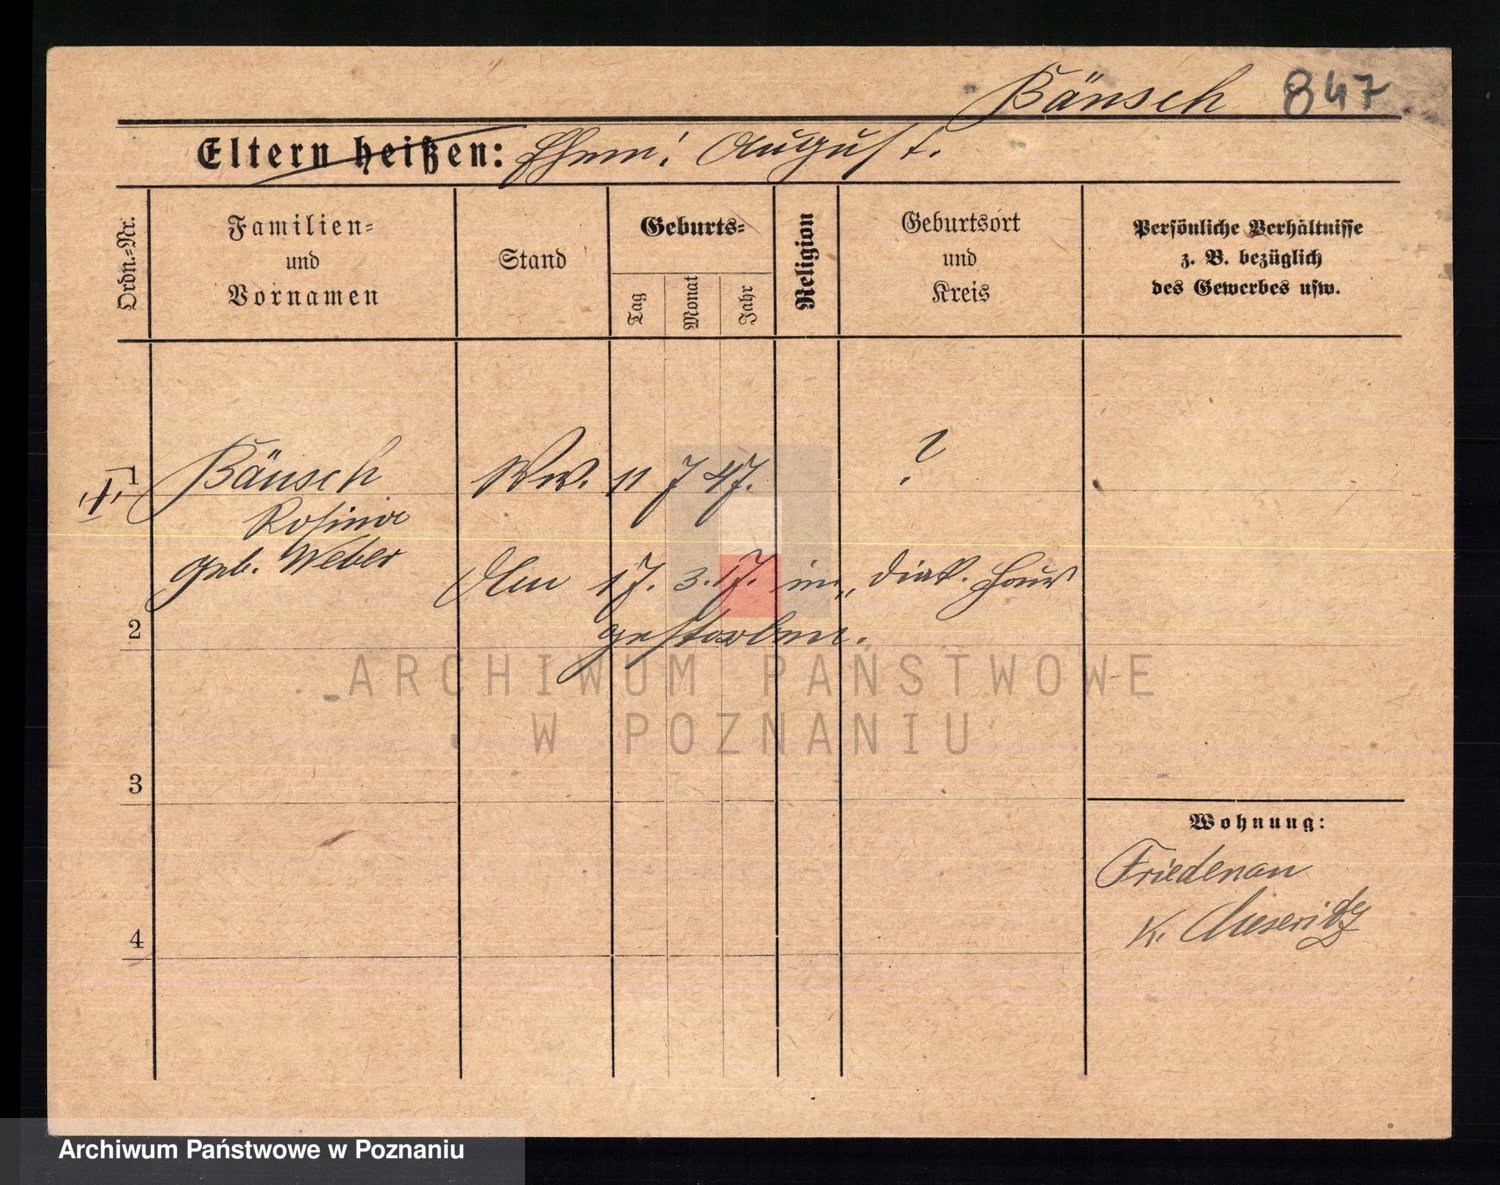 Bänsch 847
Eltern heißen: Ehem: August.
Ordn.-Nr.
Familien-
und
Vornamen
Stand
Geburts-
Tag
Monat
Jahr
Religion
Geburtsort
und
Kreis
Persönliche Verhältnisse
z. B. bezüglich
des Gewerbes usw.
1 Bänsch Ww. 11 7 47. ?
Rosina
geb. Weber
Am 17. 3. 17. im Diak. Haus
2 gestorben.
ARCHIWUM PAŃSTWOWE
W POZNANIU
3
Wohnung:
Friedenau
K. Meseritz
4
Archiwum Państwowe w Poznaniu